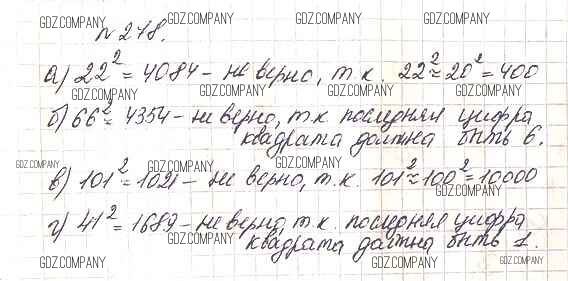 GDZ.COMPANY GDZ.COMPANY GDZ.COMPANY GDZ.COMPANY
№ 248.
а) 22² = 4084 – не верно, т.к. 22² ≈ 20² = 400
GDZ.COMPANY GDZ.COMPANY GDZ.COMPANY GDZ.COMPANY
б) 66² = 4354 – не верно, т.к. последняя цифра
квадрата должна быть 6.
GDZ.COMPANY GDZ.COMPANY GDZ.COMPANY
в) 101² = 1021 – не верно, т.к. 101² ≈ 100² = 10000
GDZ.COMPANY
г) 41² = 1689 – не верно, т.к. последняя цифра
GDZ.COMPANY
квадрата должна быть 1.
GDZ.COMPANY GDZ.COMPANY GDZ.COMPANY